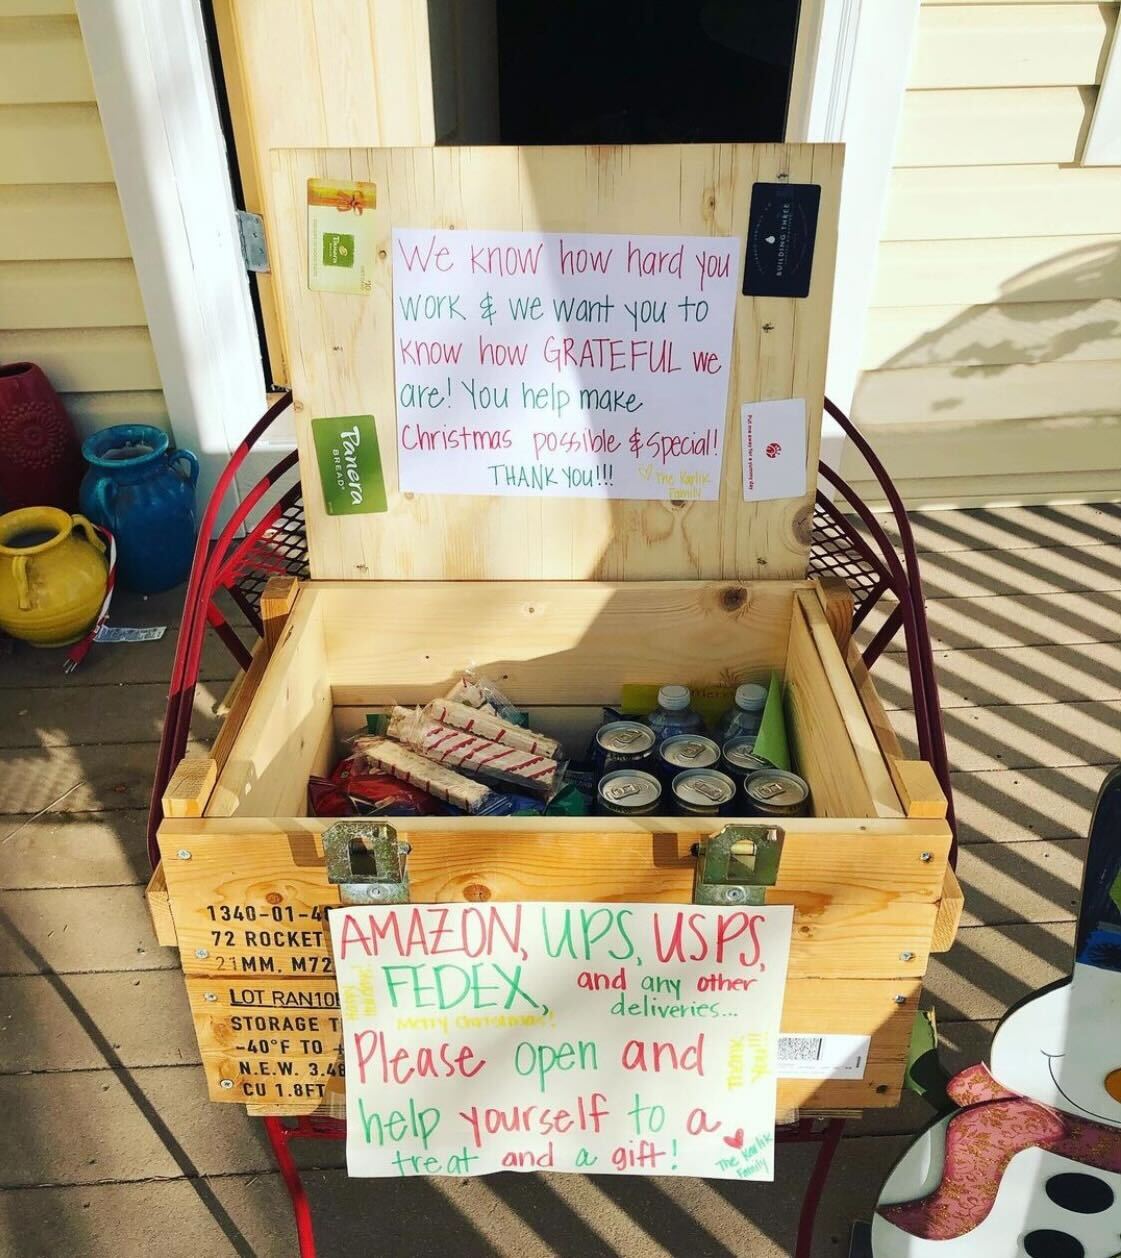 We know how hard you
work & we want you to
know how GRATEFUL we
are! You help make
Christmas possible & special!
THANK YOU!!!
The Karlik
Family
Panera
BREAD
BUILDING THREE
Put me away for a yummy day
Merry
1340-01-4
72 ROCKET
21MM, M72
LOT RAN10
STORAGE T
-40°F TO +
N.E.W. 3.48
CU 1.8FT
AMAZON, UPS, USPS,
FEDEX, and any other
deliveries...
Merry Christmas!
Please open and
help yourself to a
treat and a gift!
The Karlik
Family